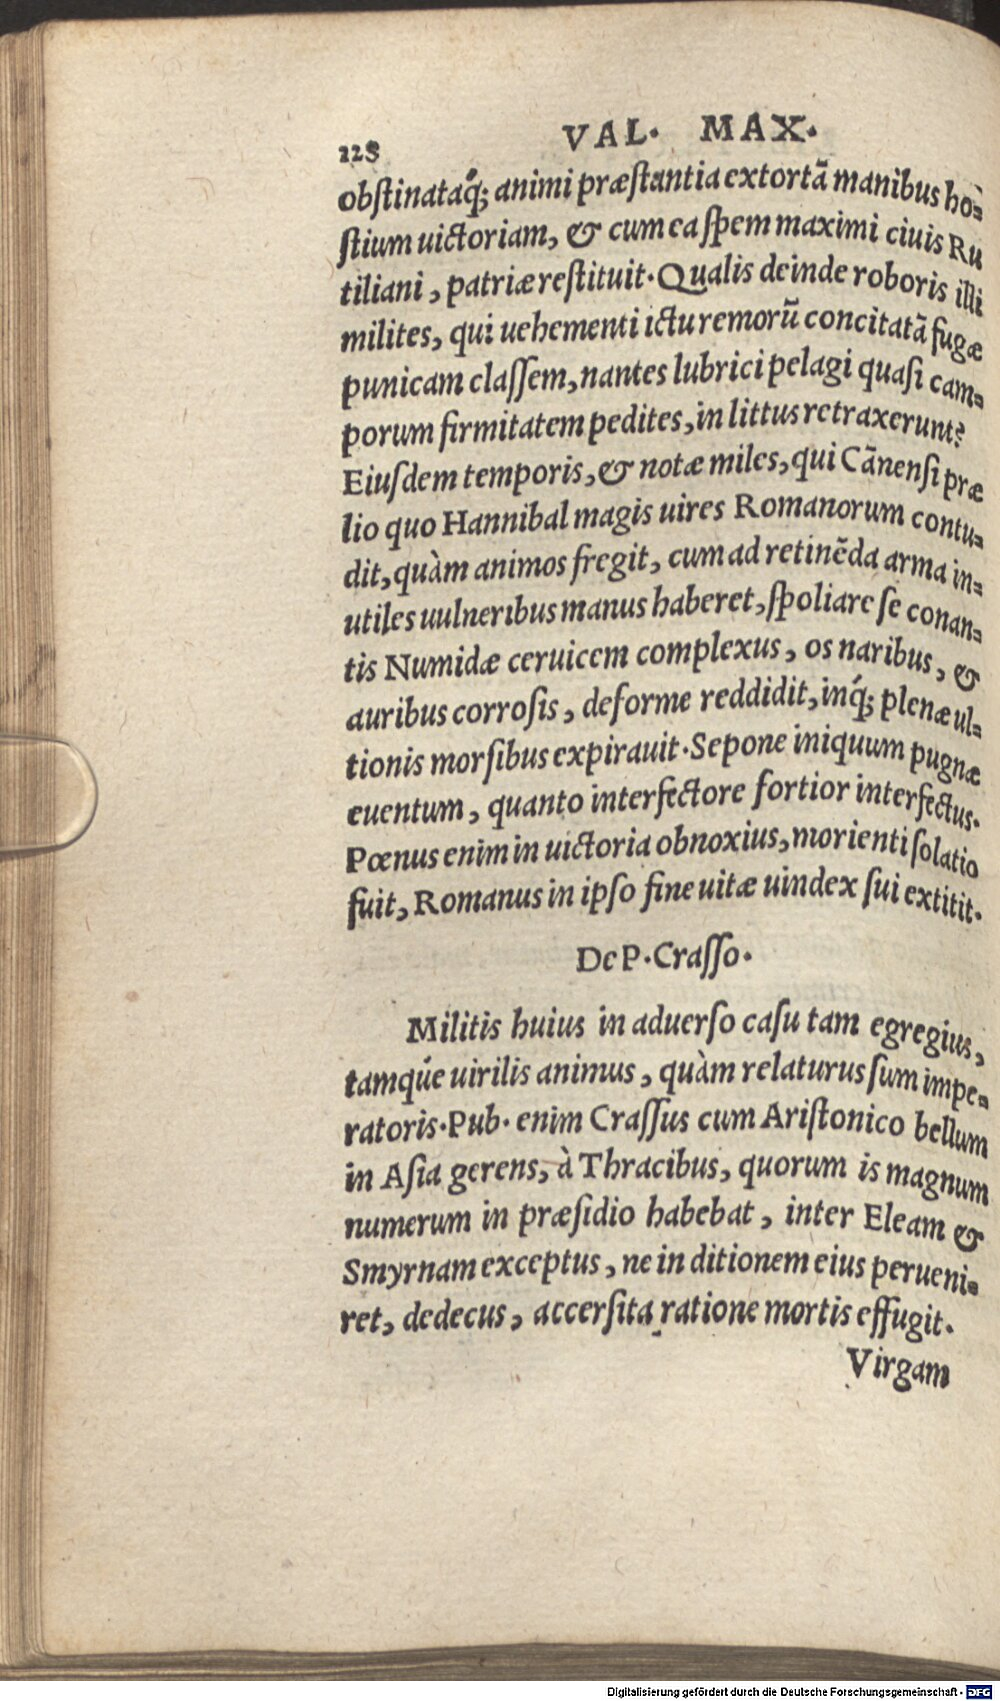 128 VAL. MAX.
obſtinataq́; animi præſtantia extortā manibus ho=
ſtium uictoriam, & cum ea ſpem maximi ciuis Ru
tiliani, patriæ reſtituit. Qualis deinde roboris illi
milites, qui uehementi ictu remorū concitatā fugæ
punicam claſſem, nantes lubrici pelagi quaſi cam=
porum firmitatem pedites, in littus retraxerunt?
Eiuſdem temporis, & notæ miles, qui Cānenſi præ
lio quo Hannibal magis uires Romanorum contu=
dit, quàm animos fregit, cum ad retinēda arma in=
utiles uulneribus manus haberet, ſpoliare ſe conan=
tis Numidæ ceruicem complexus, os naribus, &
auribus corroſis, deforme reddidit, inq́; plenæ ul=
tionis morſibus expirauit. Sepone iniquum pugnæ
euentum, quanto interfectore fortior interfectus.
Pœnus enim in uictoria obnoxius, morienti ſolatio
fuit, Romanus in ipſo fine uitæ uindex ſui extitit.
De P. Craſſo.
Militis huius in aduerſo caſu tam egregius,
tamq́ue uirilis animus, quàm relaturus ſum impe=
ratoris. Pub. enim Craſſus cum Ariſtonico bellum
in Aſia gerens, à Thracibus, quorum is magnum
numerum in præſidio habebat, inter Eleam &
Smyrnam exceptus, ne in ditionem eius perueni=
ret, dedecus, accerſita ratione mortis effugit.
Virgam
Digitalisierung gefördert durch die Deutsche Forschungsgemeinschaft - DFG